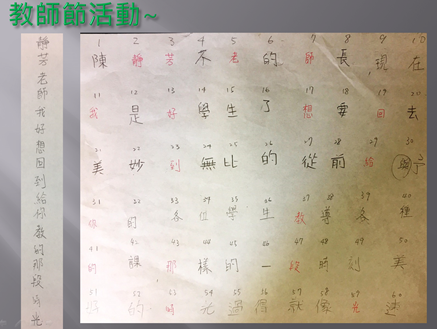 教師節活動~
靜芳老師我好想回到給你教的那段時光
1 2 3 4 5 6 7 8 9 10
陳 靜 芳 不 老 的 師 長,現 在
11 12 13 14 15 16 17 18 19 20
我 是 好 學 生 了 想 要 回 去
21 22 23 24 25 26 27 28 29 30
美 妙 到 無 比 的 從 前 給 予
31 32 33 34 35 36 37 38 39 40
你 的 各 位 學 生 教 導 各 種
41 42 43 44 45 46 47 48 49 50
的 課 那 樣 的 一 段 時 刻 美
51 52 53 54 55 56 57 58 59 60
好 的 時 光 過 得 就 像 光 速